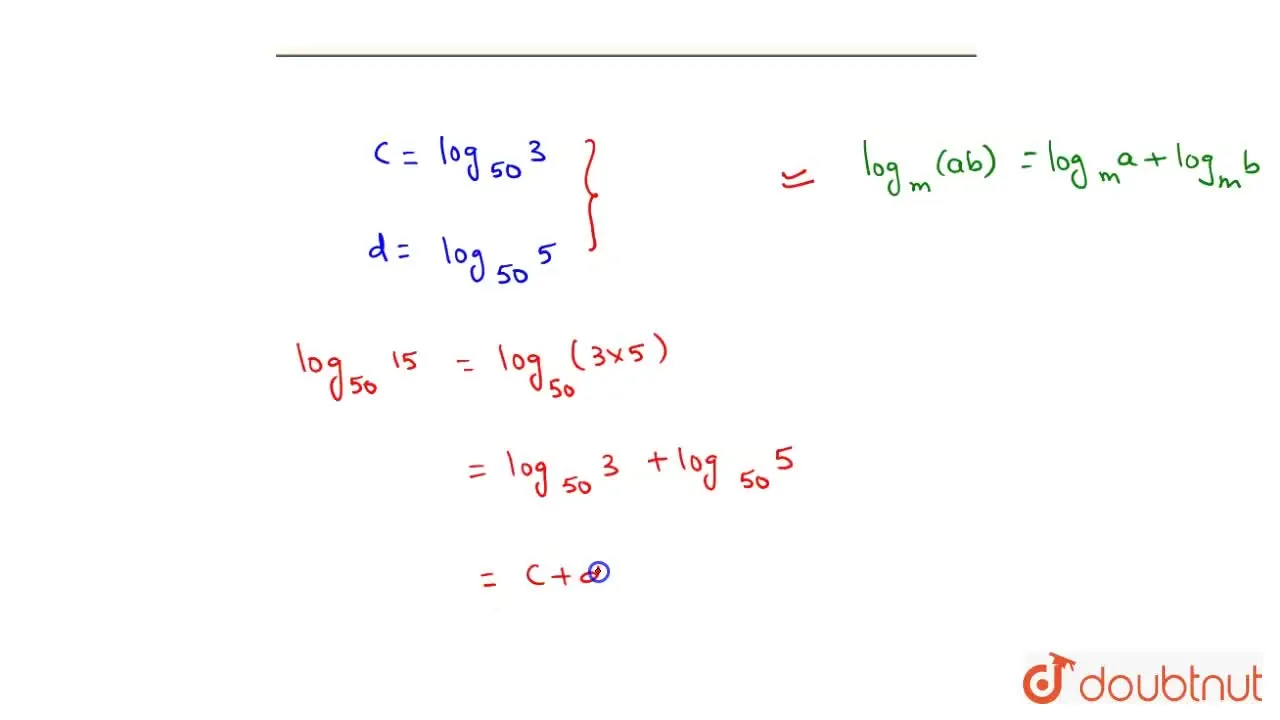 c = log₅₀ 3
log_m (ab) = log_m a + log_m b
d = log₅₀ 5
log₅₀ 15 = log₅₀ (3×5)
= log₅₀ 3 + log₅₀ 5
= c + d
doubtnut